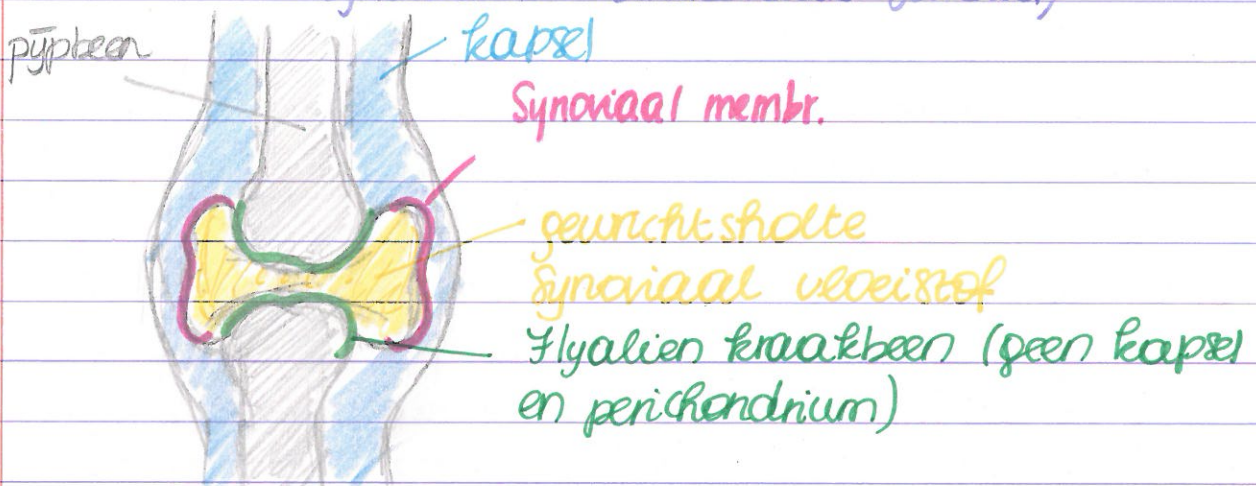 pijpbeen
kapsel
Synoviaal membr.
gewrichtsholte
Synoviaal vloeistof
Hyalien kraakbeen (geen kapsel
en perichondrium)